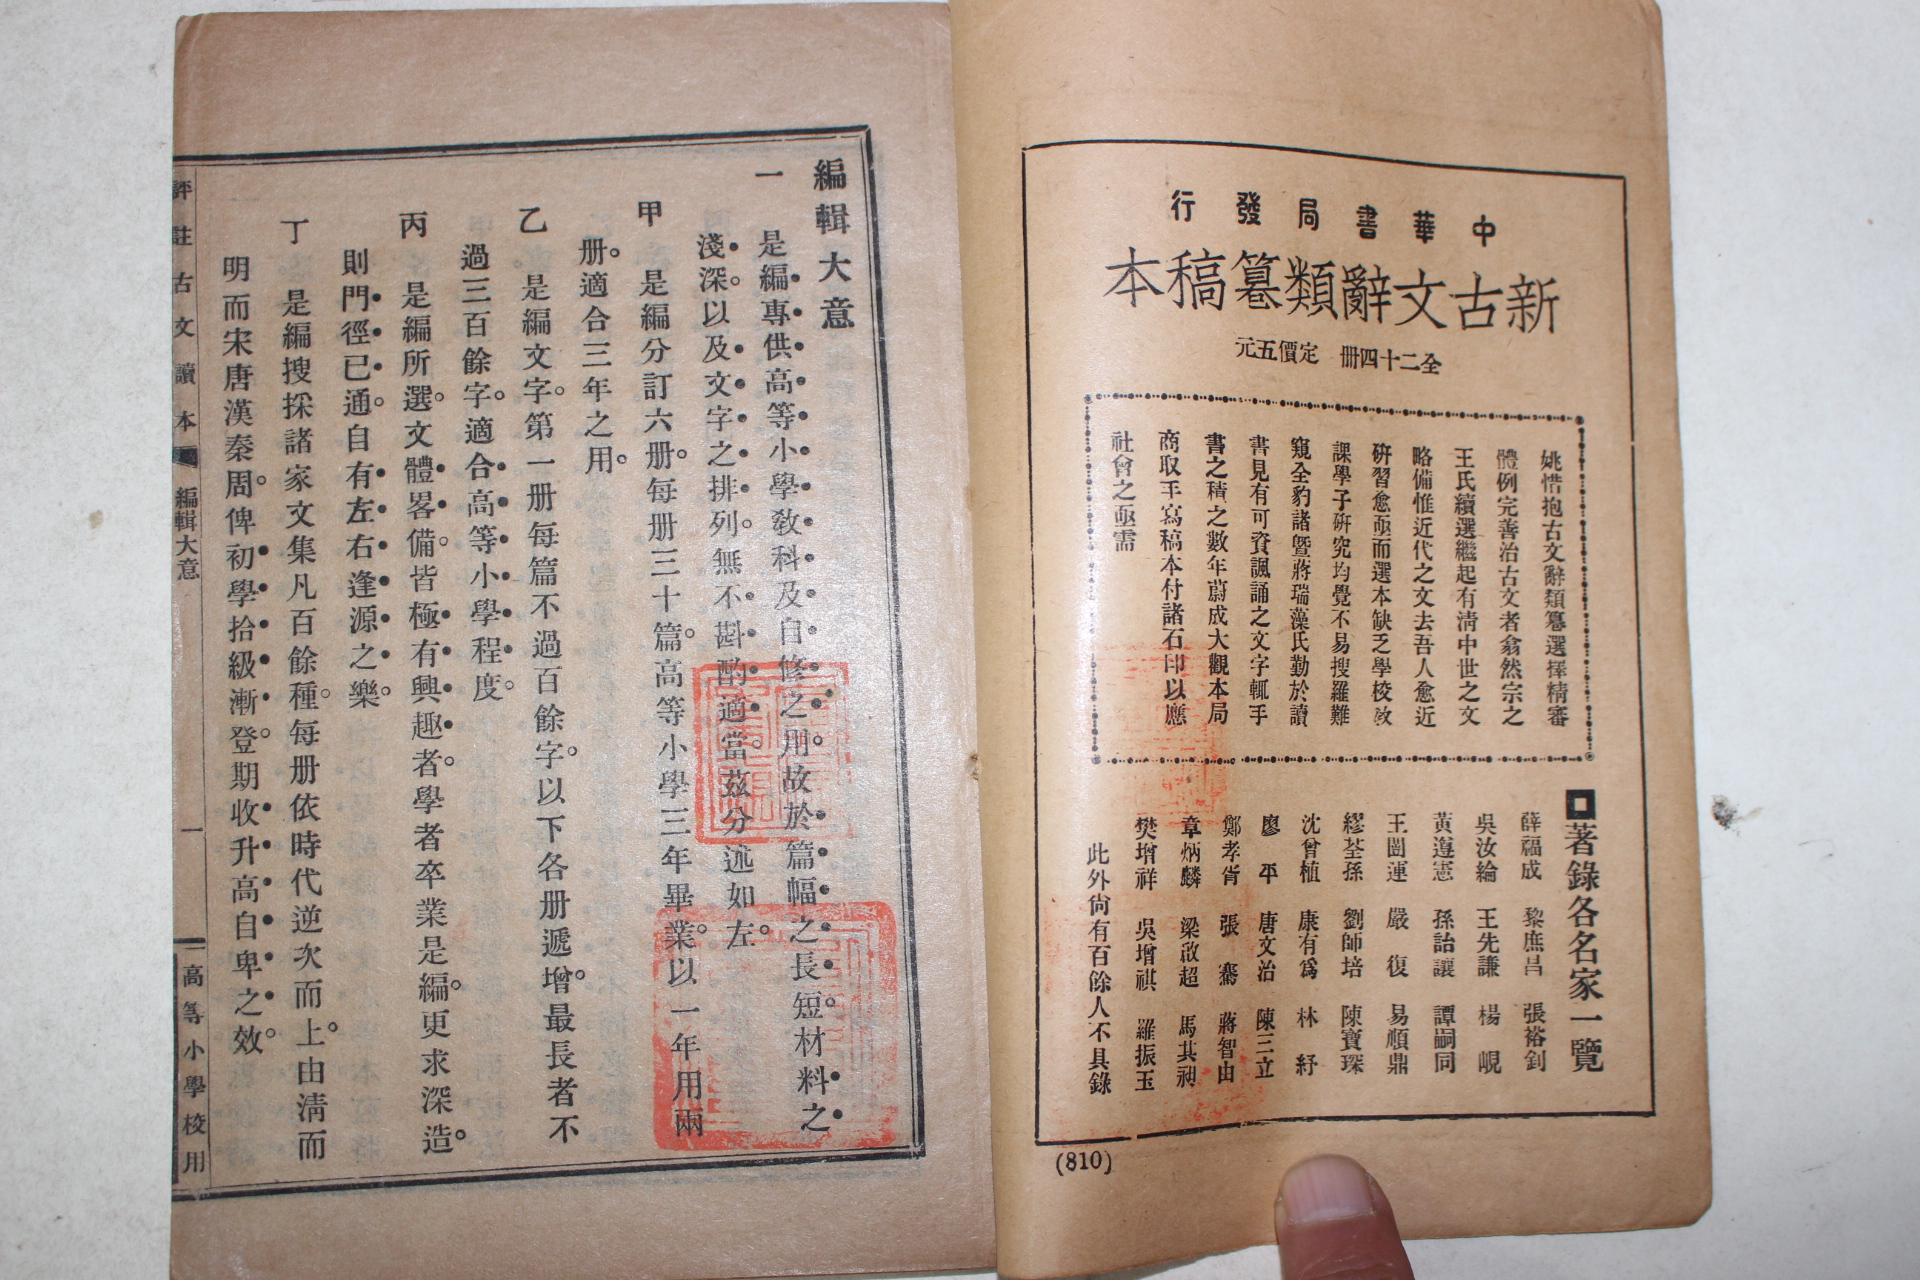 中華書局發行
新古文辭類篹稿本
全二十四冊 定價五元
姚惜抱古文辭類篹選擇精審
體例完善治古文者翕然宗之
王氏續選繼起有清中世之文
略備惟近代之文去吾人愈近
研習愈亟而選本缺乏學校教
課學子研究均覺不易搜羅難
窺全豹諸暨蔣瑞藻氏勤於讀
書見有可資諷誦之文字輒手
書之積之數年蔚成大觀本局
商取手寫稿本付諸石印以應
社會之亟需
著錄各名家一覽
薛福成 黎庶昌 張裕釗
吳汝綸 王先謙 楊峴
黃遵憲 孫詒讓 譚嗣同
王闓運 嚴復 易順鼎
繆荃孫 劉師培 陳寶琛
沈曾植 康有爲 林紓
廖平 唐文治 陳三立
鄭孝胥 張謇 蔣智由
章炳麟 梁啟超 馬其昶
樊增祥 吳增祺 羅振玉
此外尙有百餘人不具錄
(810)
編輯大意
一 是編專供高等小學敎科及自修之用。故於篇幅之長短。材料之
淺深。以及文字之排列。無不斟酌適當。茲分述如左。
甲 是編分訂六册。每册三十篇。高等小學三年畢業。以一年用兩
册。適合三年之用。
乙 是編文字。第一册每篇不過百餘字。以下各册遞增。最長者不
過三百餘字。適合高等小學程度。
丙 是編所選。文體畧備。皆極有興趣者。學者卒業是編。更求深造。
則門徑已通。自有左右逢源之樂。
丁 是編搜採諸家文集凡百餘種。每册依時代逆次而上。由淸而
明而宋唐漢秦周。俾初學拾級漸登。期收升高自卑之效。
評註古文讀本 編輯大意 一 高等小學校用